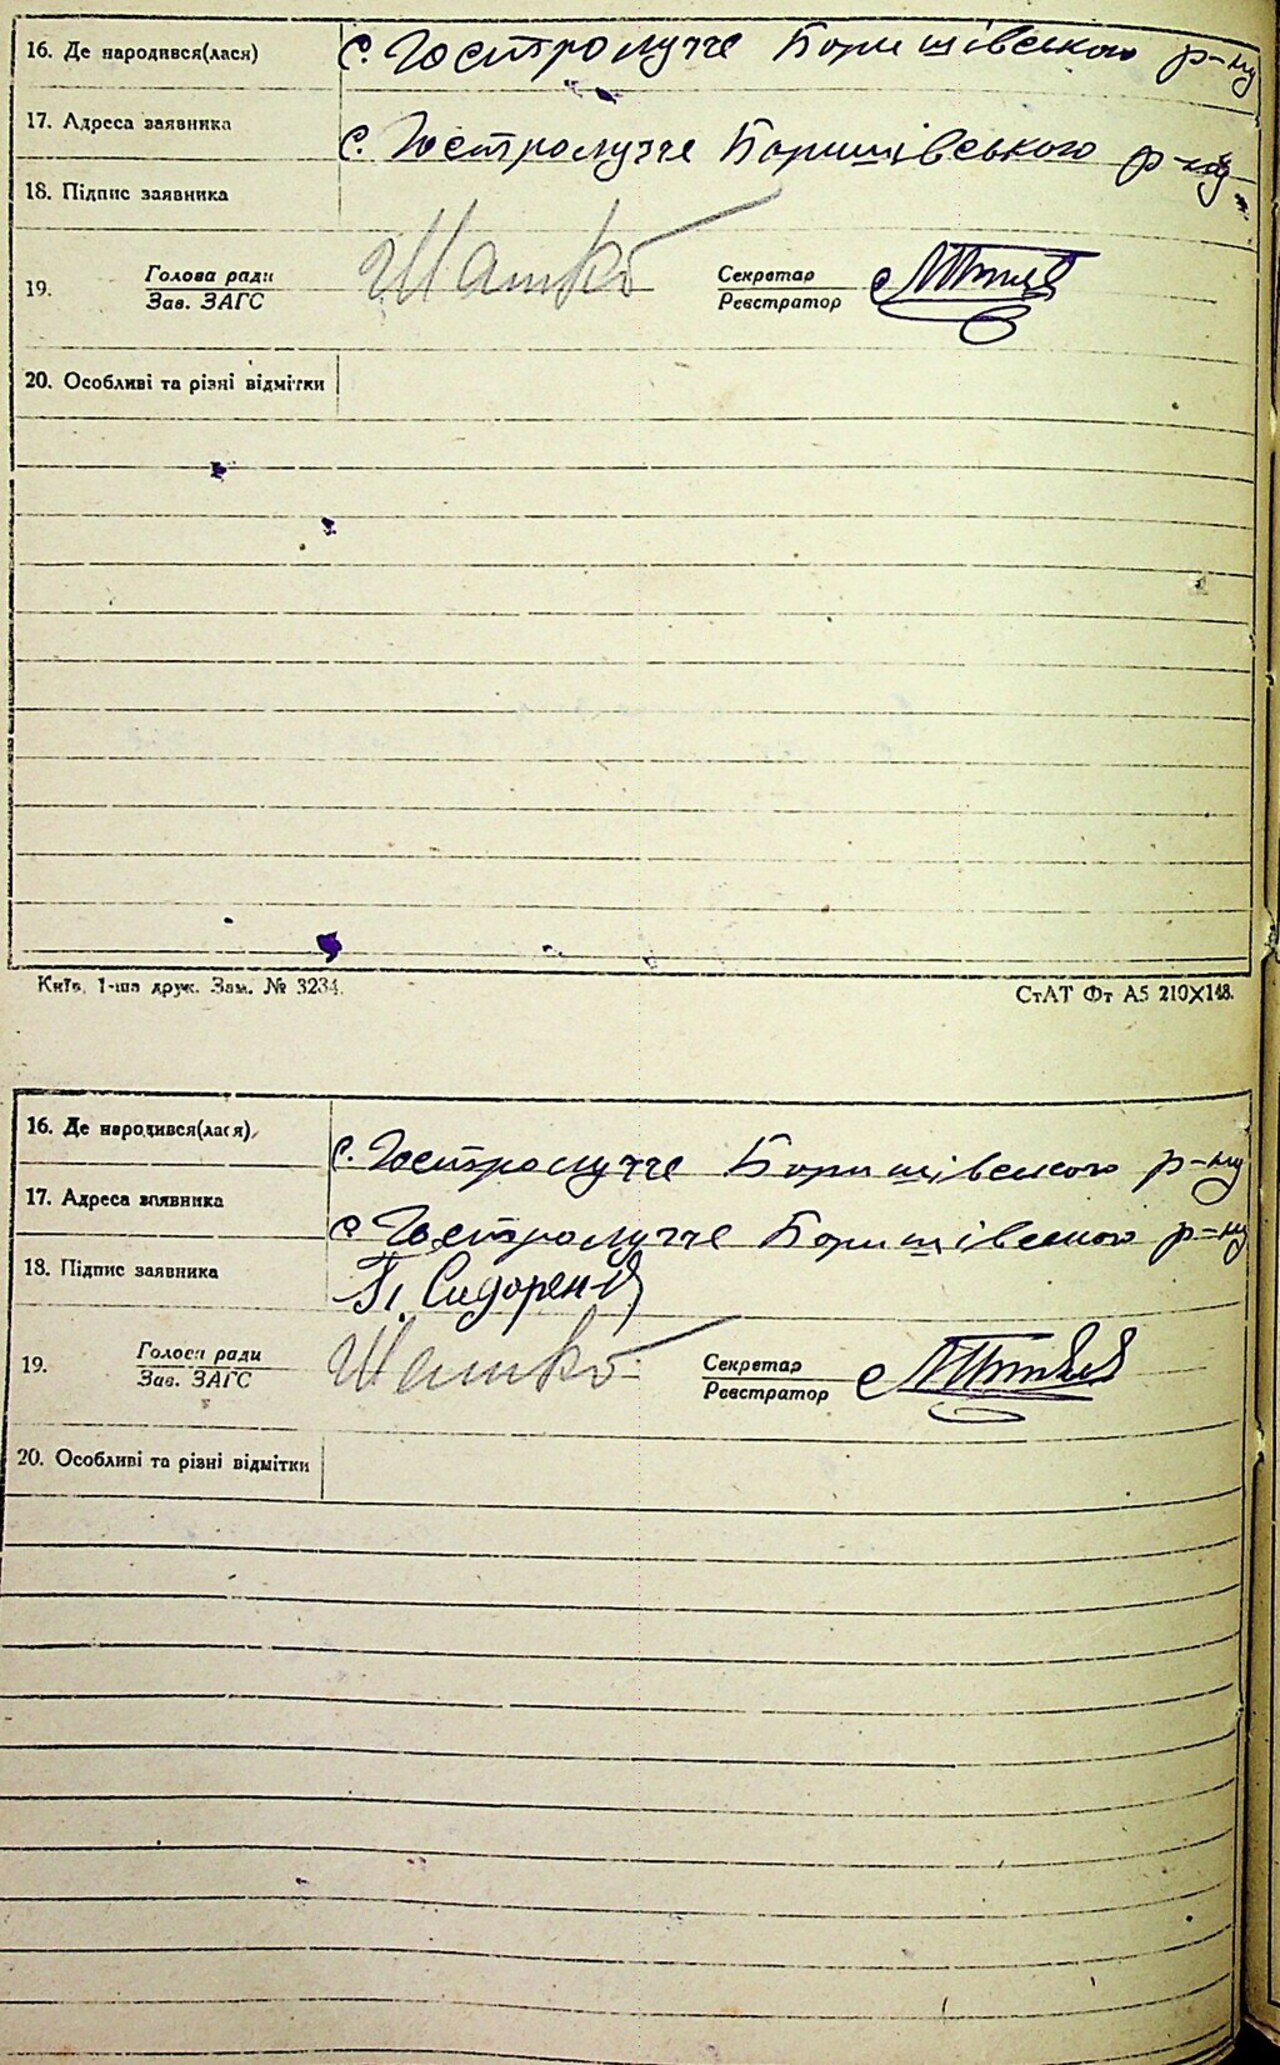 16. Де народився(лася) с. Гостролучче Баришівського р-ну
17. Адреса заявника с. Гостролучче Баришівського р-ну
18. Підпис заявника
19. Голова ради
Зав. ЗАГС
Секретар
Реєстратор
20. Особливі та різні відмітки
Київ, 1-ша друк. Зам. № 3234. СтАТ Фт А5 210X148.
16. Де народився(лася) с. Гостролучче Баришівського р-ну
17. Адреса заявника с. Гостролучче Баришівського р-ну
18. Підпис заявника Сидорен
19. Голова ради
Зав. ЗАГС
Секретар
Реєстратор
20. Особливі та різні відмітки